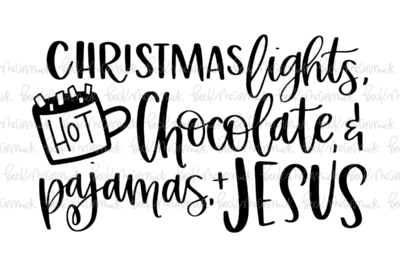 CHRISTMAS lights,
HOT Chocolate, &
pajamas, + JESUS